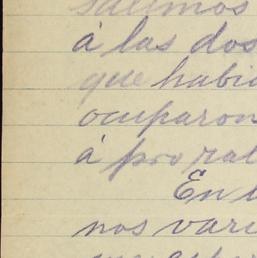 salimos
á las dos
que habia
ocuparon
á pro rat
En
nos vari